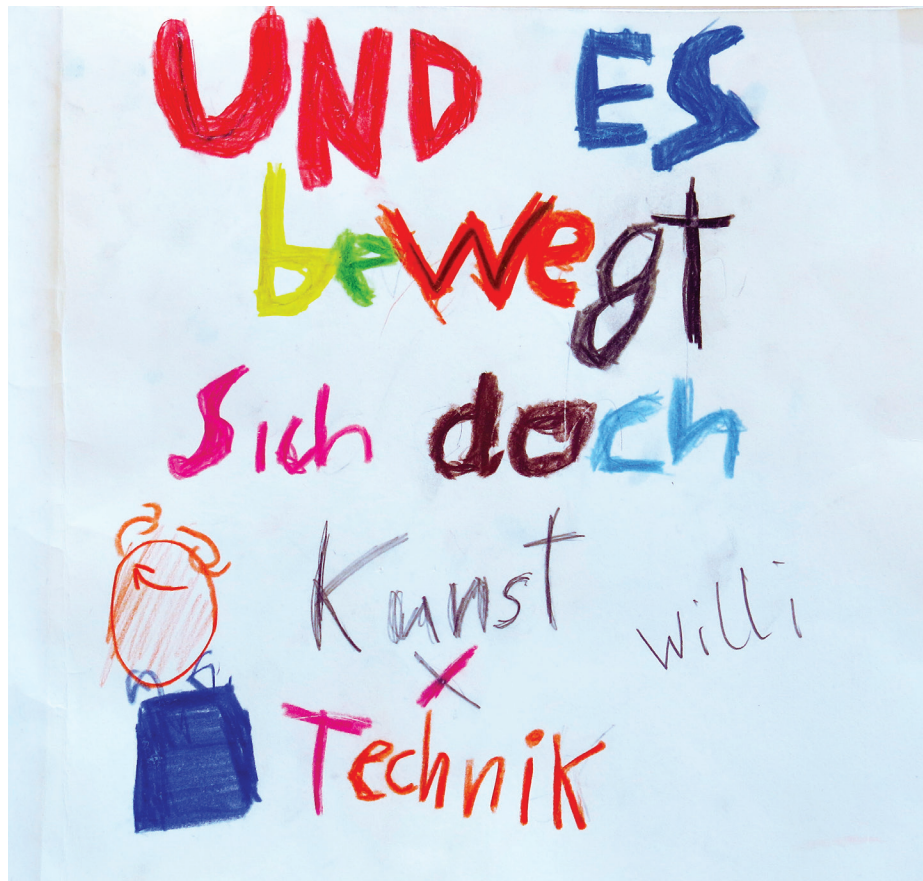 UND ES
bewegt
Sich doch
Kunst
x
Technik
Willi